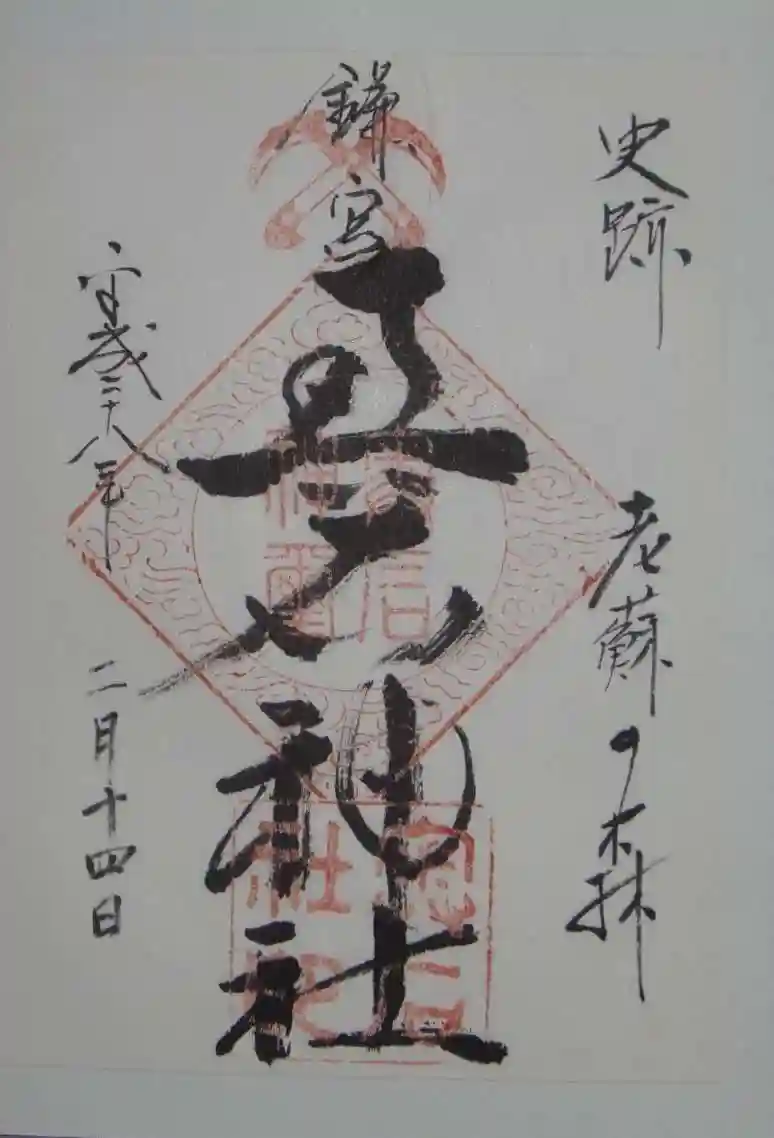 史跡 老蘇の森
鎌宮 奥石神社
平成二十八年 二月十四日